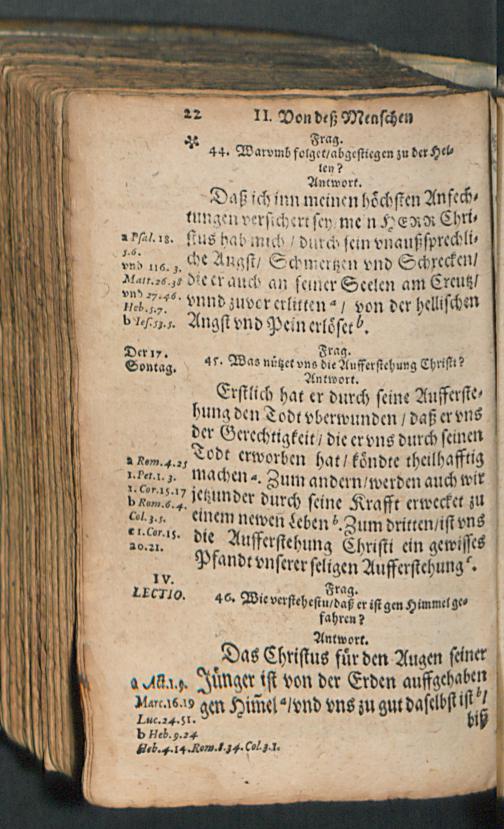 22 II. Von deß Menschen
Frag.
✲ 44. Warvmb folget/abgestiegen zu der Hel-
len?
Antwort.
Daß ich inn meinen höchsten Anfech-
tungen versichert sey/ me n HERR Chri-
stus hab mich / durch sein vnaußsprechli-
che Angst/ Schmertzen vnd Schrecken/
die er auch an seiner Seelen am Creutz/
vnnd zuvor erlitten ᵃ/ von der hellischen
Angst vnd Pein erlöset ᵇ.
a Psal. 18.
5.6.
vnd 116. 3.
Matt. 26.38
vnd 27.46.
Heb. 5.7.
b Ies. 53.5.
Der 17.
Sontag.
Frag.
45. Was nützet vns die Aufferstehung Christi?
Antwort.
Erstlich hat er durch seine Aufferste-
hung den Todt vberwunden / daß er vns
der Gerechtigkeit / die er vns durch seinen
Todt erworben hat / köndte theilhafftig
machen ᵃ. Zum andern/ werden auch wir
jetzunder durch seine Krafft erwecket zu
einem newen Leben ᵇ. Zum dritten/ ist vns
die Aufferstehung Christi ein gewisses
Pfandt vnserer seligen Aufferstehung ᶜ.
a Rom. 4.25
1. Pet. 1. 3.
1. Cor. 15.17
b Rom. 6.4.
Col. 3.1.
c 1. Cor. 15.
20.21.
IV.
LECTIO.
Frag.
46. Wie verstehestu/ daß er ist gen Himmel ge-
fahren?
Antwort.
Das Christus für den Augen seiner
Jünger ist von der Erden auffgehaben
gen Him̃el ᵃ/ vnd vns zu gut daselbst ist ᵇ/
biß
a Act. 1.9.
Marc. 16.19
Luc. 24.51.
b Heb. 9.24
Heb. 4.14. Rom. 8.34. Col. 3.1.